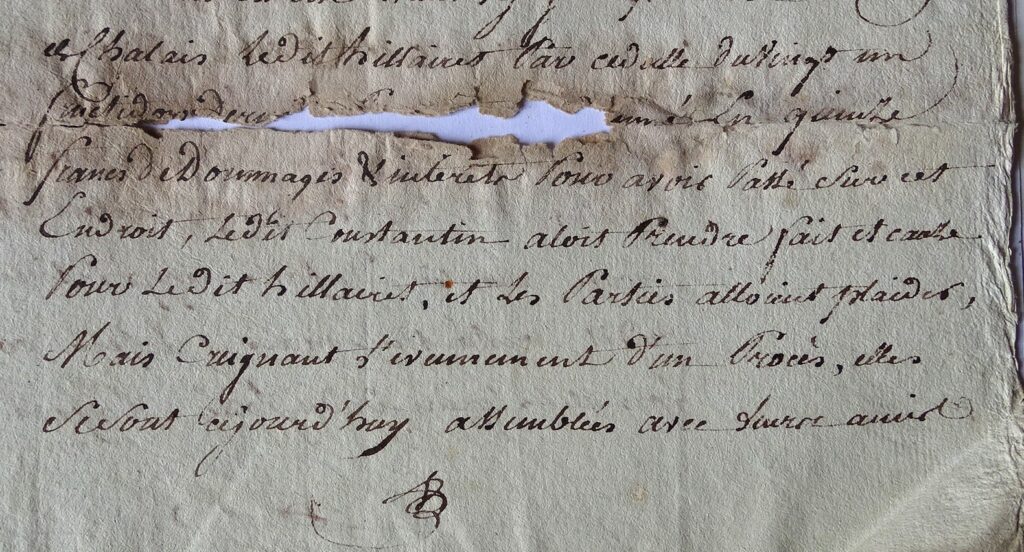 et Chalais Ledit hillairet Par cedulle du Vingt un
en quinze
francs de Dommages & interets Pour avoir Passé Sur cet
Endroit, Ledit Constantin aloit Prendre fait et cause
Pour Ledit hillairet, et Les Parties alloient plaider,
Mais Craignant l'evenement d'un Procès, elles
Se Sont cejourd'huy assemblées avec leurs amis